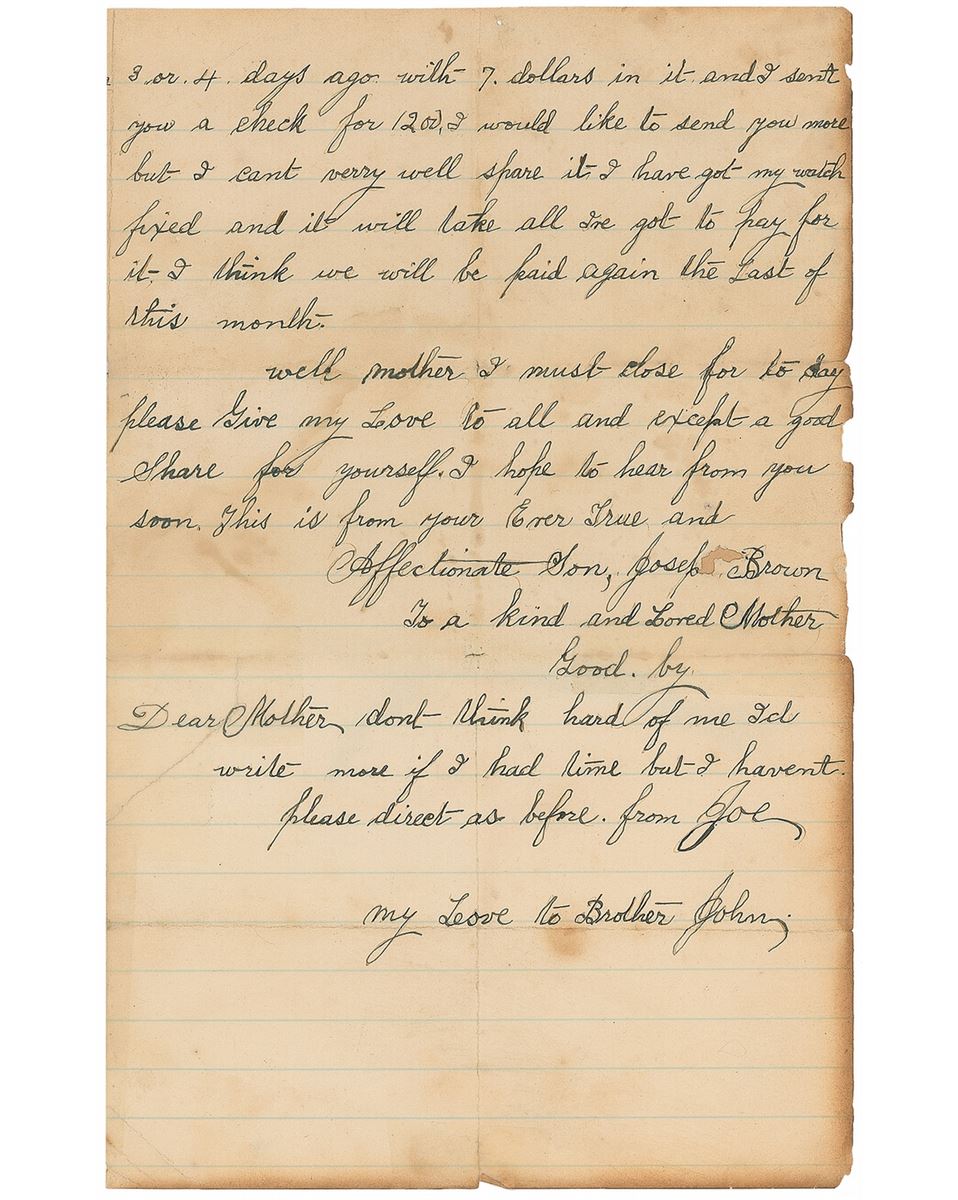 3 or. 4. days ago. with 7. dollars in it. and I sent
you a check for I would like to send you more
but I cant verry well spare it. I have got my watch
fixed and it will take all Ive got to pay for
it. I think we will be paid again the Last of
this month.
well mother I must close for to day
please Give my Love to all and except a good
Share for yourself. I hope to hear from you
soon. This is from your Ever True and
Affectionate Son, Joseph Brown
To a kind and Loved Mother
Good. by.
Dear Mother dont think hard of me Id
write more if I had time but I havent.
please direct as before. from Joe
my Love to Brother John,